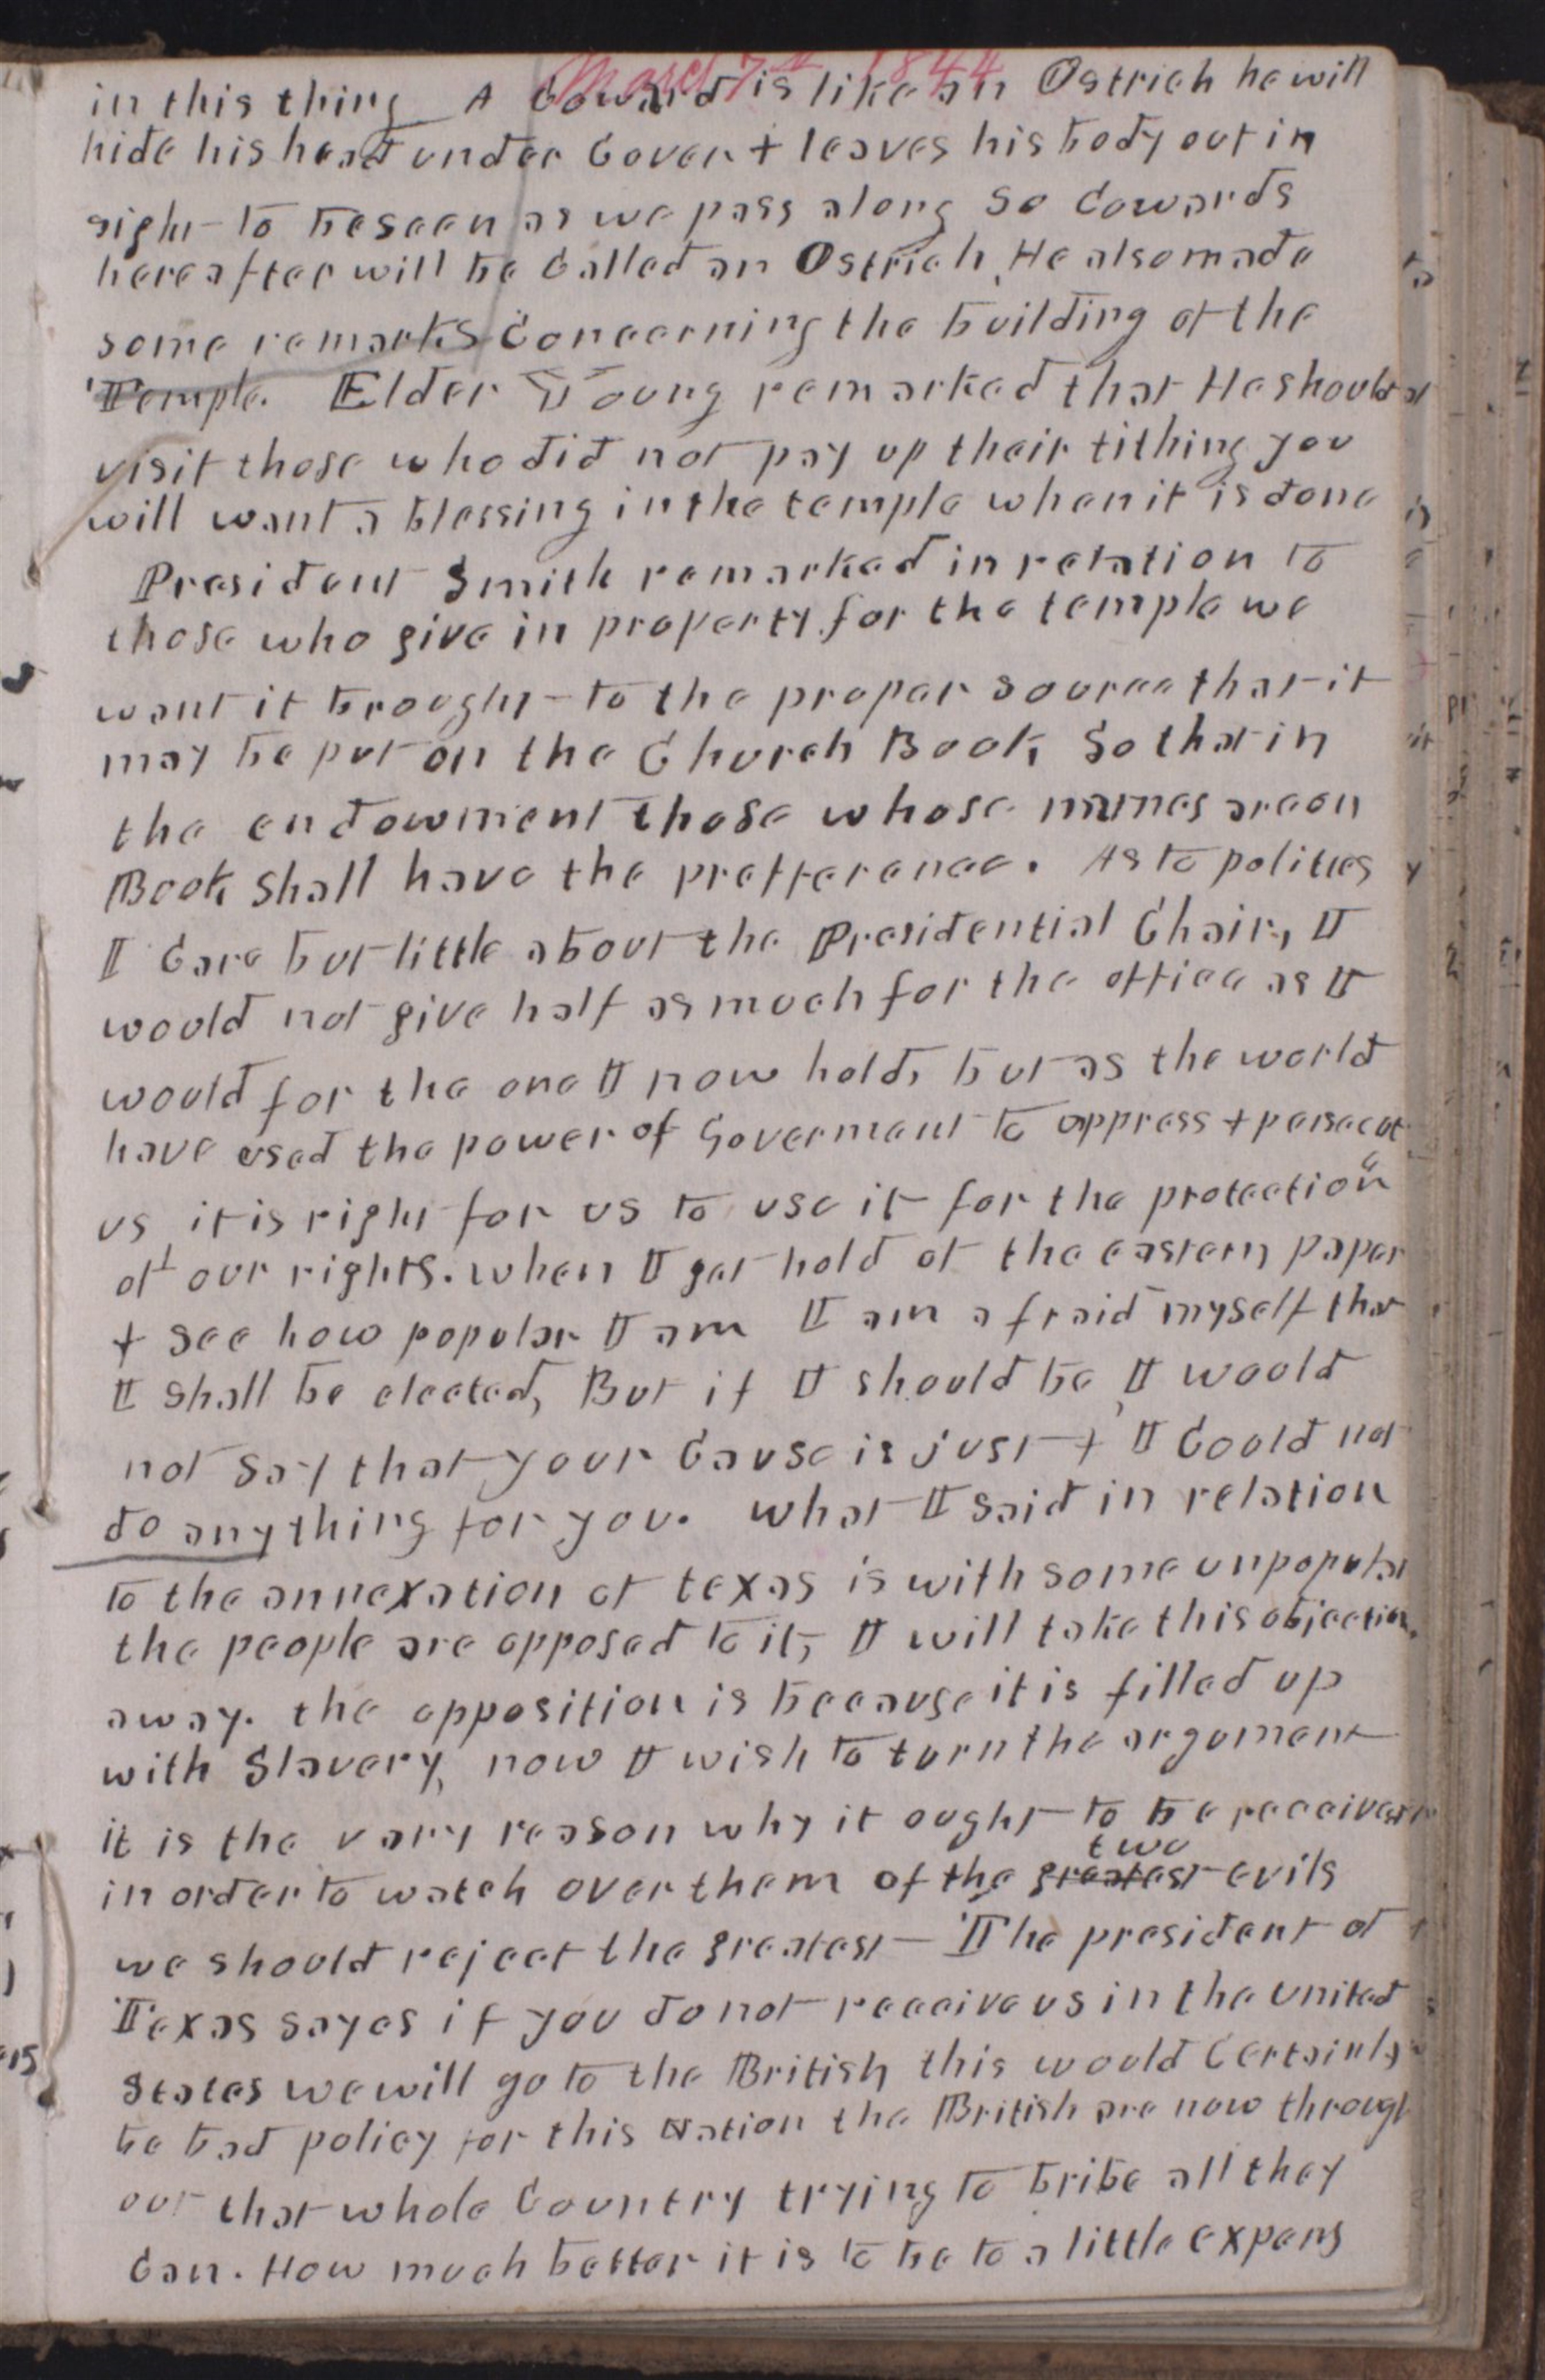 March 7th 1844
in this thing A Coward is like an Ostrich he will
hide his head under Cover + leaves his body out in
sight to be seen as we pass along So Cowards
hereafter will be Called an Ostrich. He also made
some remarks Concerning the building of the
Temple. Elder Young remarked that He should
visit those who did not pay up their tithing you
will want a blessing in the temple when it is done
President Smith remarked in relation to
those who give in property for the temple we
want it brought to the proper source that it
may be put on the Church Book, So that in
the endowment those whose names are on
Book Shall have the prefference. As to politics
I Care but little about the Presidential Chair, I
would not give half as much for the office as I
would for the one I now hold, but as the world
have used the power of Goverment to oppress + persecute
us it is right for us to use it for the protection
of our rights. when I get hold of the eastern paper
+ see how popular I am I am afraid myself that
I shall be elected, But if I should be, I would
not say that your Cause is just + I Could not
do anything for you. What I said in relation
to the annexation of texas is with some unpopular
the people are opposed to it, I will take this objection
away. the opposition is because it is filled up
with Slavery, now I wish to turn the argument
it is the very reason why it ought to be received
in order to watch over them of the greatest two evils
we should reject the greatest The president of
Texas sayes if you do not receive us in the united
States we will go to the British this would Certainly
be bad policy for this Nation the British are now through
out that whole Country trying to bribe all they
Can. How much better it is to be to a little expens